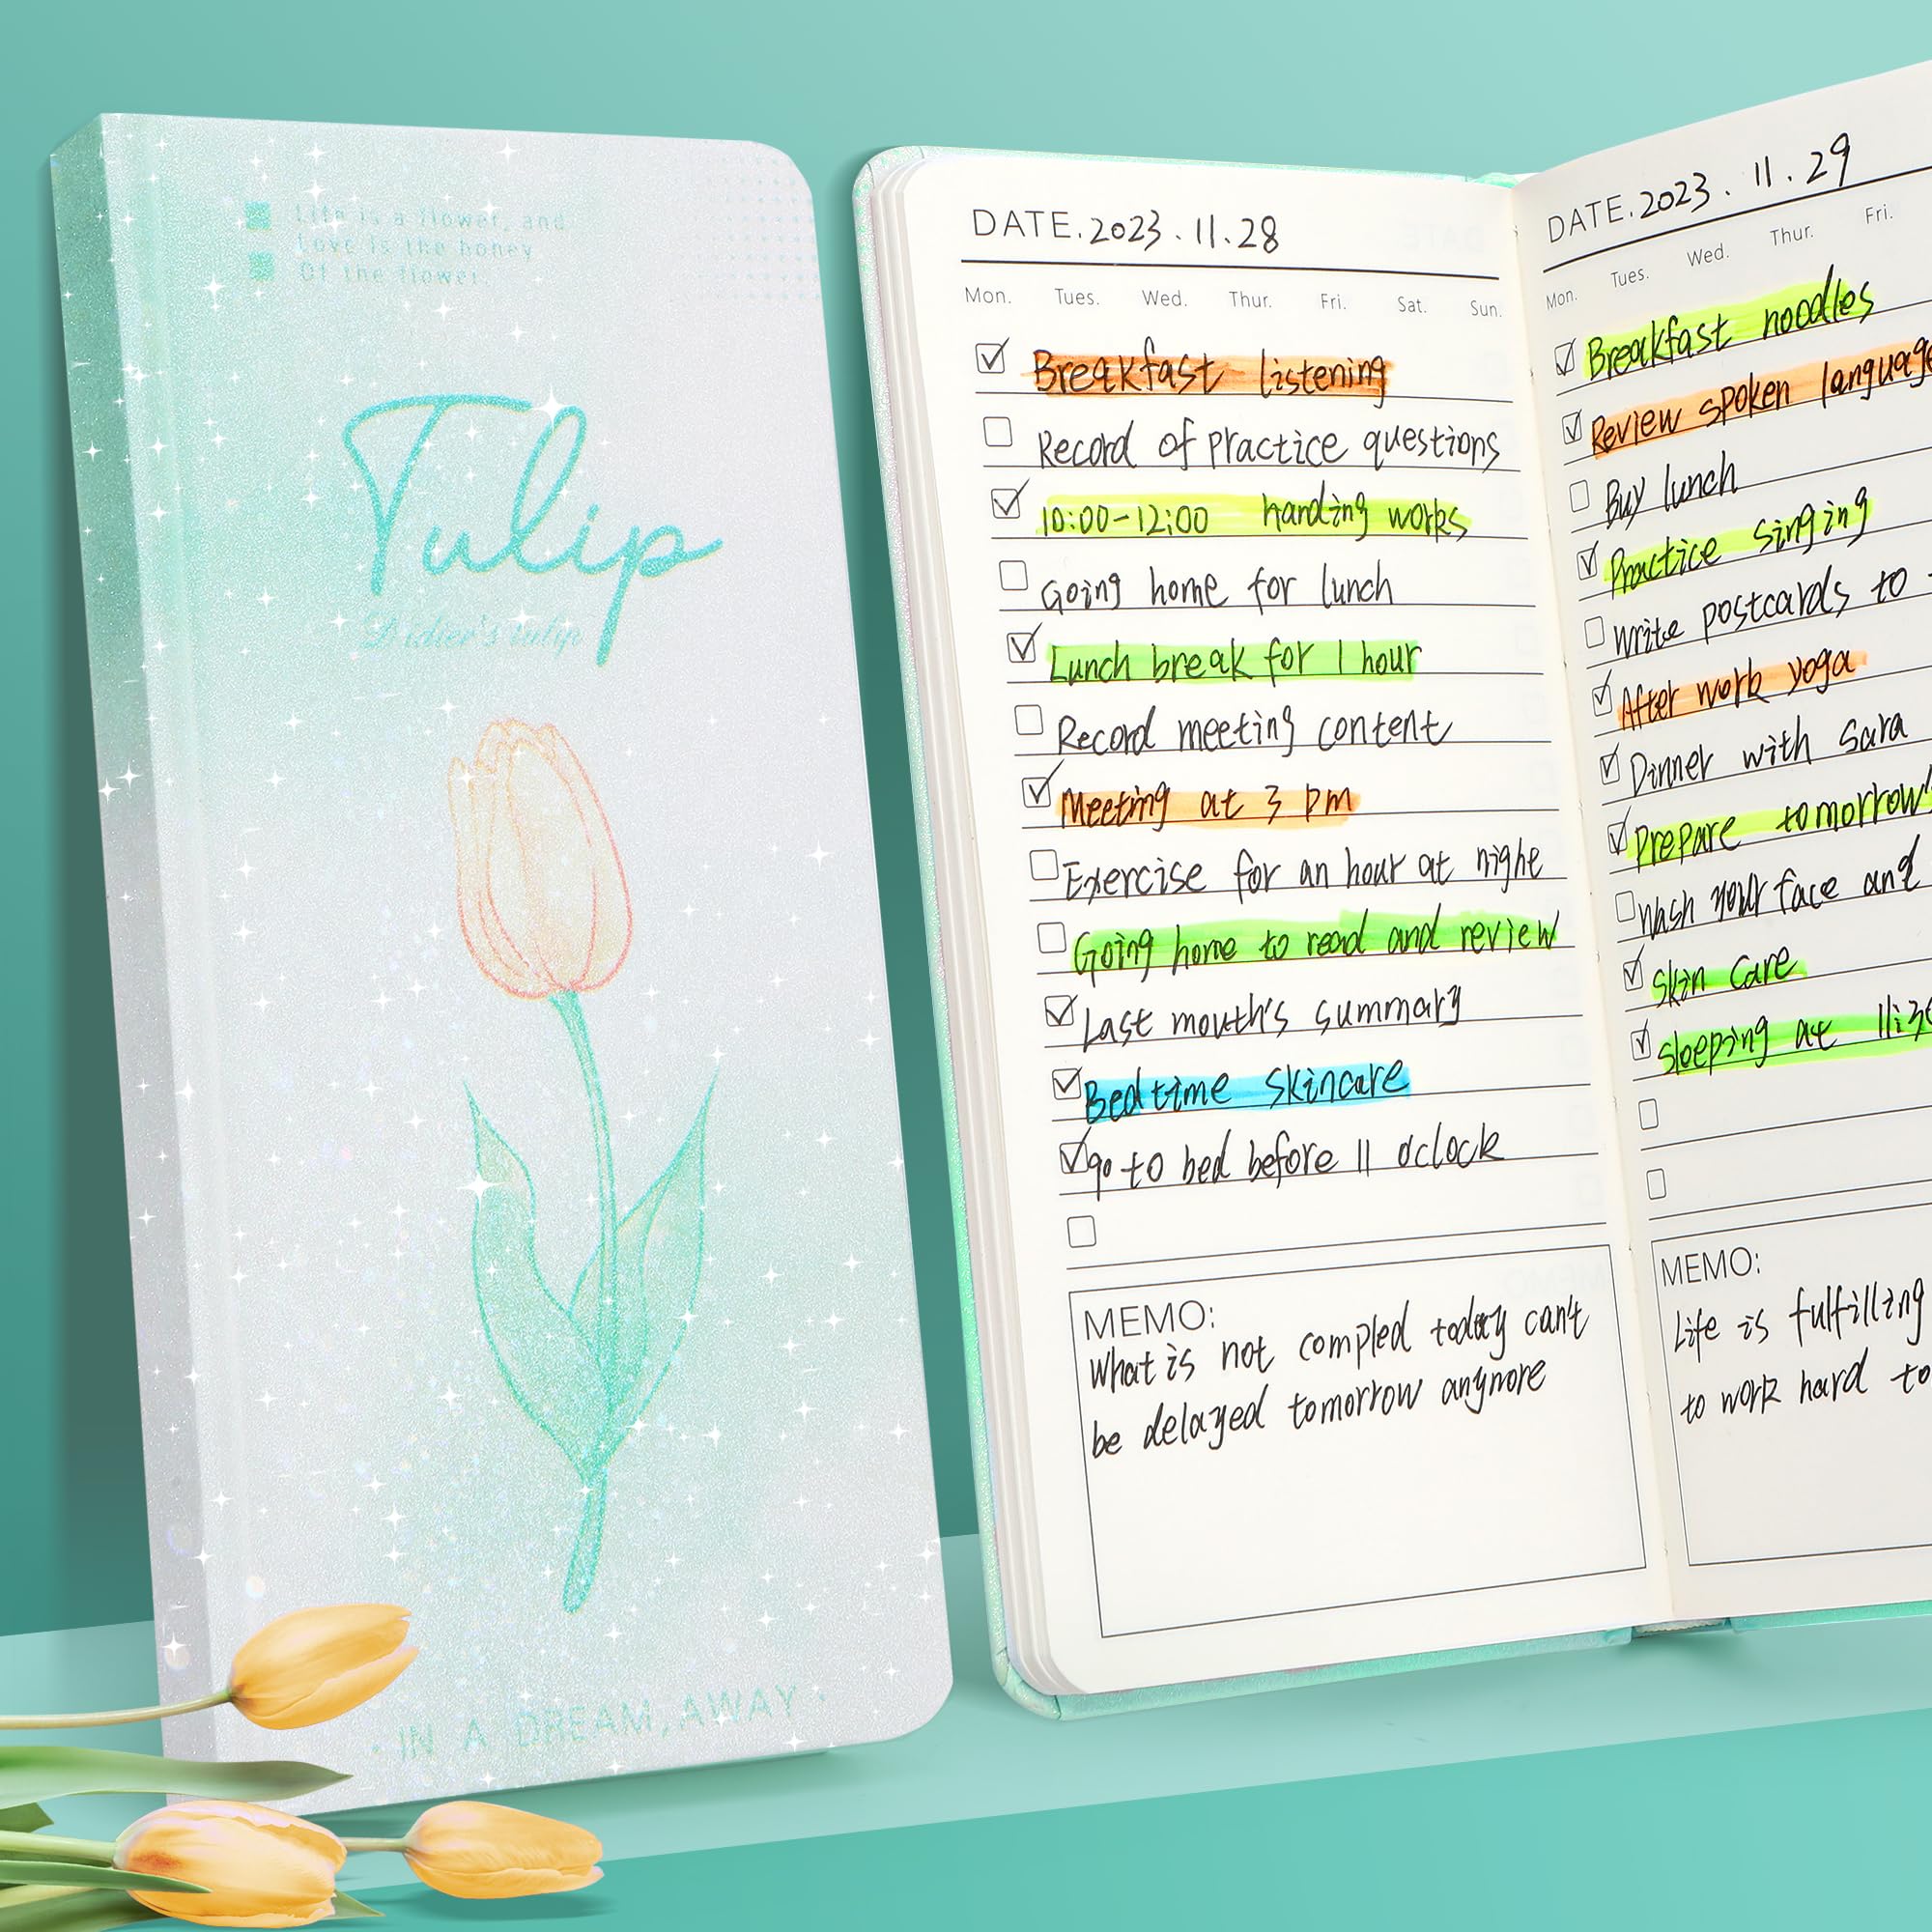 Life is a flower, and
Love is the honey
Of the flower.
Tulip
Didier's tulip
· IN A DREAM, AWAY ·
DATE. 2023. 11. 28
Mon. Tues. Wed. Thur. Fri. Sat. Sun.
Breakfast listening
Record of practice questions
10:00-12:00 handing works
Going home for lunch
Lunch break for 1 hour
Record meeting content
Meeting at 3 pm
Exercise for an hour at night
Going home to read and review
Last mouth's summary
Bedtime skincare
go to bed before 11 o'clock
MEMO:
What is not compled today can't
be delayed tomorrow anymore
DATE. 2023. 11. 29
Mon. Tues. Wed. Thur. Fri.
Breakfast noodles
Review spoken language
Buy lunch
Practice singing
Write postcards to
After work yoga
Dinner with Sara
Prepare tomorrow's
Wash your face and
Skin care
Sleeping at 11:30
MEMO:
Life is fulfilling
to work hard to